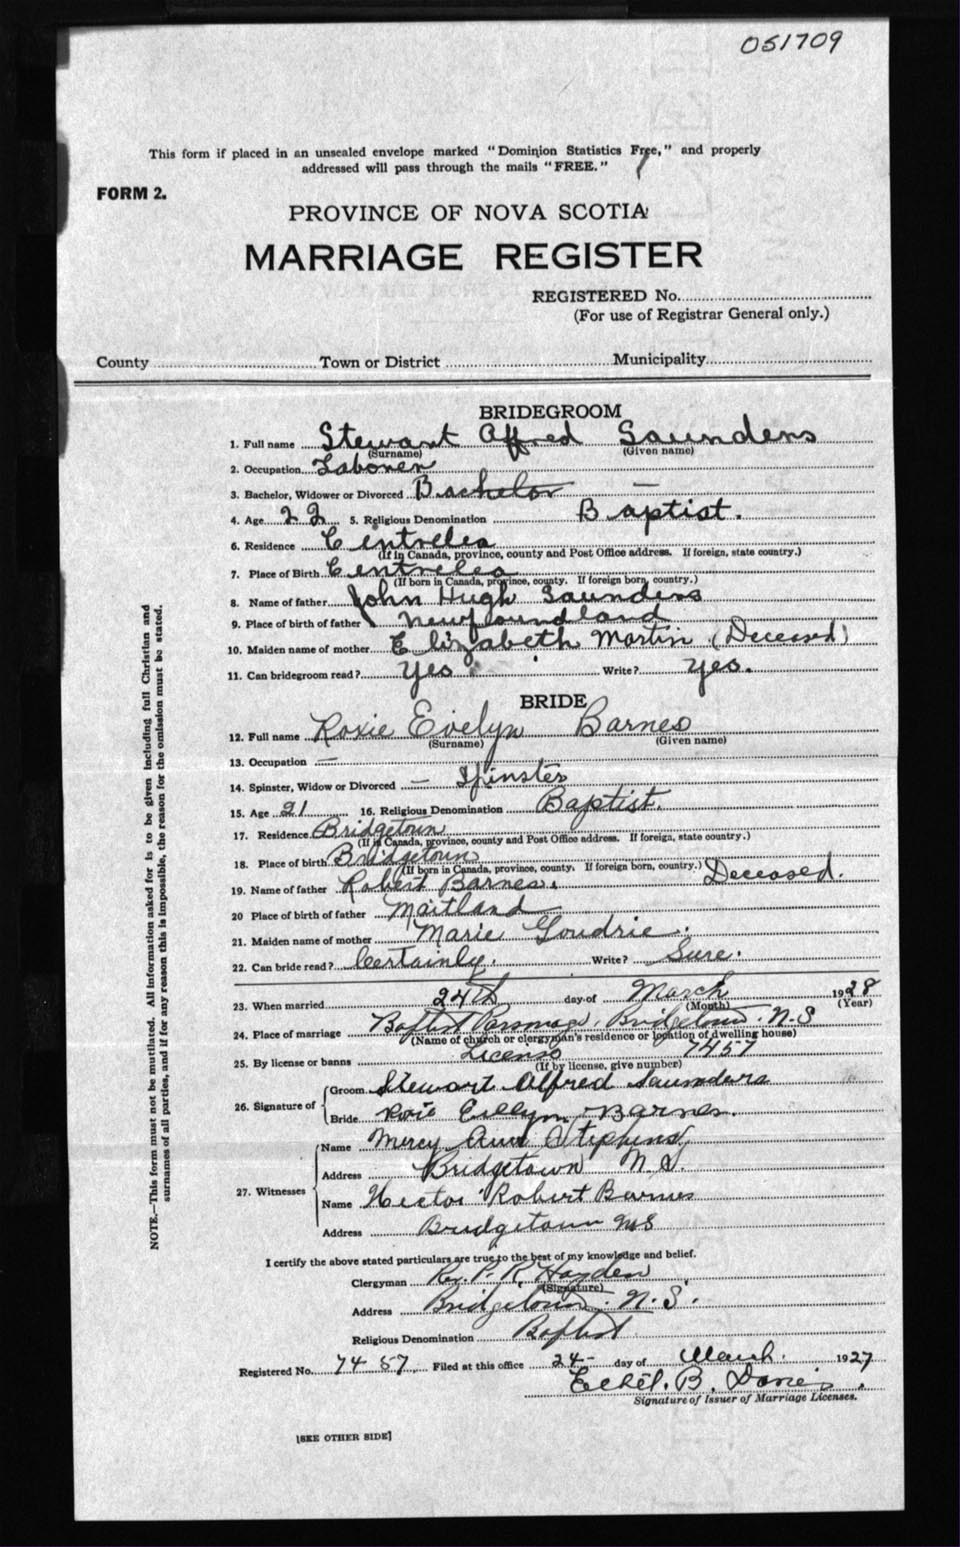 051709
This form if placed in an unsealed envelope marked "Dominion Statistics Free," and properly
addressed will pass through the mails "FREE."
FORM 2.
PROVINCE OF NOVA SCOTIA
MARRIAGE REGISTER
REGISTERED No.
(For use of Registrar General only.)
County Town or District Municipality
BRIDEGROOM
1. Full name Stewart Alfred Saunders
(Surname) (Given name)
2. Occupation Laborer
3. Bachelor, Widower or Divorced Bachelor —
4. Age 22 5. Religious Denomination Baptist.
6. Residence Centrelea
(If in Canada, province, county and Post Office address. If foreign, state country.)
7. Place of Birth Centrelea
(If born in Canada, province, county. If foreign born, country.)
8. Name of father John Hugh Saunders
9. Place of birth of father Newfoundland
10. Maiden name of mother Elizabeth Martin (Deceased)
11. Can bridegroom read? Yes Write? yes.
BRIDE
12. Full name Roxie Evelyn Barnes
(Surname) (Given name)
13. Occupation —
14. Spinster, Widow or Divorced — Spinster
15. Age 21 16. Religious Denomination Baptist.
17. Residence Bridgetown
(If in Canada, province, county and Post Office address. If foreign, state country.)
18. Place of birth Bridgetown
(If born in Canada, province, county. If foreign born, country.)
19. Name of father Robert Barnes. Deceased.
20 Place of birth of father Maitland
21. Maiden name of mother Marie Goudrie.
22. Can bride read? Certainly. Write? Sure.
23. When married 24th day of March 1928
(Month) (Year)
24. Place of marriage Baptist Parsonage, Bridgetown. N.S
(Name of church or clergyman's residence or location of dwelling house)
25. By license or banns License 7457
(If by license, give number)
26. Signature of Groom Stewart Alfred Saunders
Bride Roxie Evelyn Barnes.
27. Witnesses Name Mercy Ann Stephens,
Address Bridgetown N.S.
Name Hector Robert Barnes
Address Bridgetown NS
I certify the above stated particulars are true to the best of my knowledge and belief.
Clergyman Rev. P. R. Hayden
(Signature)
Address Bridgetown. N.S.
Religious Denomination Baptist
Registered No. 7457 Filed at this office 24- day of March. 1927
Ethel. B.
Signature of Issuer of Marriage Licenses.
[SEE OTHER SIDE]
NOTE.—This form must not be mutilated. All information asked for is to be given including full Christian and
surnames of all parties, and if for any reason this is impossible, the reason for the omission must be stated.